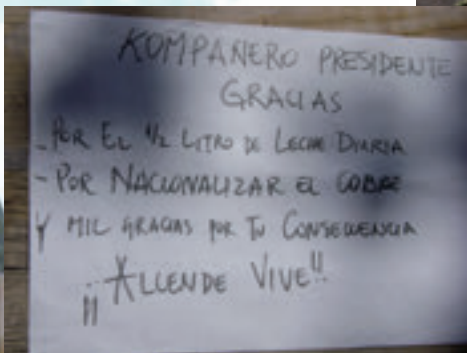 KOMPAÑERO PRESIDENTE
GRACIAS
- POR EL 1/2 LITRO DE LECHE DIARIA
- POR NACIONALIZAR EL COBRE
Y MIL GRACIAS POR TU CONSECUENCIA
¡¡ALLENDE VIVE!!